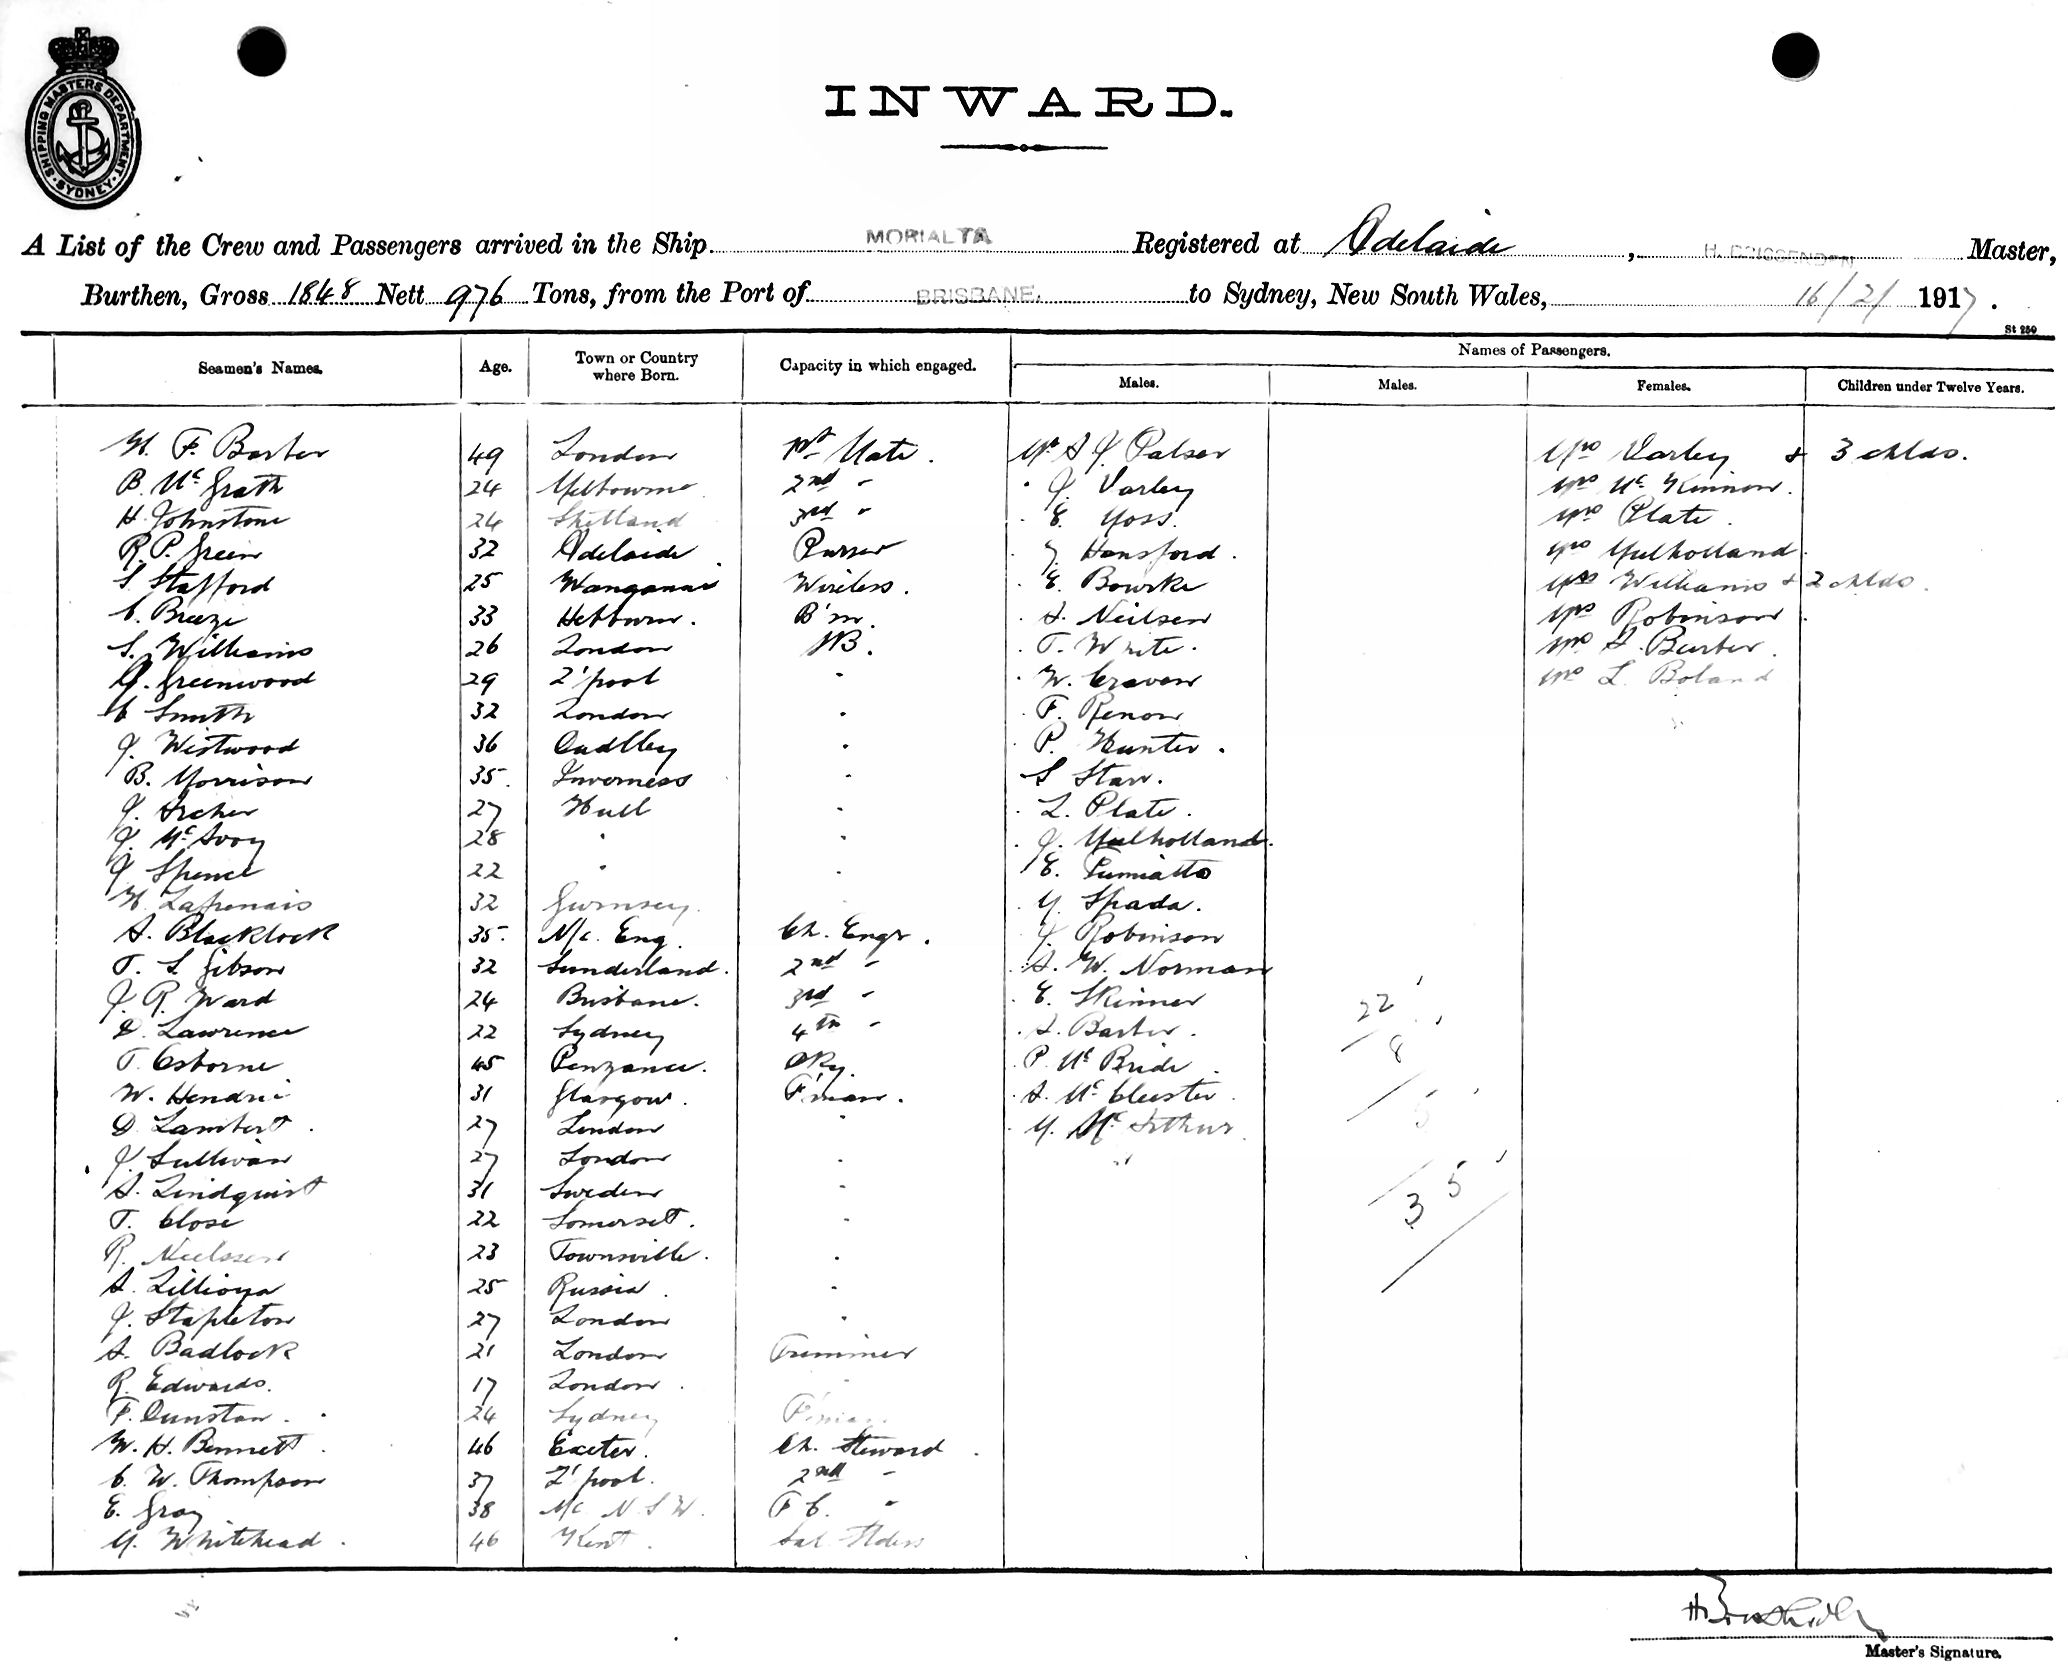 SHIPPING MASTERS DEPARTMENT
SYDNEY
INWARD.
A List of the Crew and Passengers arrived in the Ship MORIALTA Registered at Adelaide, H. BRISSENDEN Master,
Burthen, Gross 1848 Nett 976 Tons, from the Port of BRISBANE. to Sydney, New South Wales, 16/2/ 1917.
St 250
Seamen's Names. Age. Town or Country where Born. Capacity in which engaged. Names of Passengers.
Males. Males. Females. Children under Twelve Years.
W. F. Barber 49 London 1st Mate. Mr A J. Palser Mrs Varley & 3 chlds.
B. McGrath 24 Melbourne 2nd " J. Varley Mrs McKinnon.
H. Johnstone 24 Shetland 3rd " E. Moss. Mrs Plate.
R. P. Green 32 Adelaide Purser J. Hansford. Mrs Mulholland.
S Stafford 25 Wanganui Wireless. E. Bourke Mrs Williams & 2 chlds.
C. Breeze 33 Hebburn. B'm. A. Neilsen Mrs Robinson
S. Williams 26 London AB. T. White. Mrs A. Barber.
G. Greenwood 29 L'pool " W. Craven Mrs L. Boland
C Smith 32 London " F. Renow
J. Westwood 36 Cudlley " P. Hunter.
B. Morrison 35. Inverness " S Starr.
J. Archer 27 Hull " L. Plate.
J. McAvoy 28 " " J. Mulholland.
J Spence 22 " " E. Tumiatto
H. Lafrenais 32 Gurnsey. " M. Spada.
A. Blacklock 35. M/c. Eng. Ch. Engr. J. Robinson
T. S. Gibson 32 Sunderland. 2nd " A. W. Norman
J. R. Ward 24 Brisbane. 3rd " E. Skinner 22
D. Lawrence 22 Sydney 4th " A. Barber. 8
T. Osborne 45 Penzance. Dky. P. McBride
W. Hendrie 31 Glasgow. F'man. A. McCluester 5
D. Lambert. 27 London " M. McArthur.
J. Sullivan 27 London "
A. Lindquist 31 Sweden " 35
T. Close 22 Somerset. "
R. Neelssen 23 Townsville. "
A. Lillioya 25 Russia. "
J. Stapleton 27 London "
A. Badlock 21 London Trimmer
R. Edwards. 17 London.
F. Dunstan. 24 Sydney F'man
W. H. Bennett 46 Exeter. Ch. Steward.
C. W. Thompson 37 L'pool. 2nd "
E. Gray 38 M/c N S W. F C. "
M. Whitehead. 46 Kent. Sal. Stdess
Master's Signature.